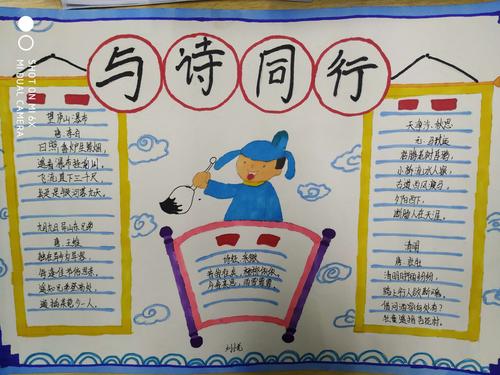 SHOT ON MI 6X
MI DUAL CAMERA
与诗同行
望庐山瀑布
唐 李白
日照香炉生紫烟，
遥看瀑布挂前川，
飞流直下三千尺
疑是银河落九天。
九月九日忆山东兄弟
唐 王维
独在异乡为异客，
每逢佳节倍思亲。
遥知兄弟登高处，
遍插茱萸少一人。
诗经·采薇
昔我往矣，杨柳依依，
今我来思，雨雪霏霏
天净沙·秋思
元·马致远
枯藤老树昏鸦，
小桥流水人家，
古道西风瘦马，
夕阳西下，
断肠人在天涯。
清明
唐 杜牧
清明时节雨纷纷，
路上行人欲断魂。
借问酒家何处有？
牧童遥指杏花村。